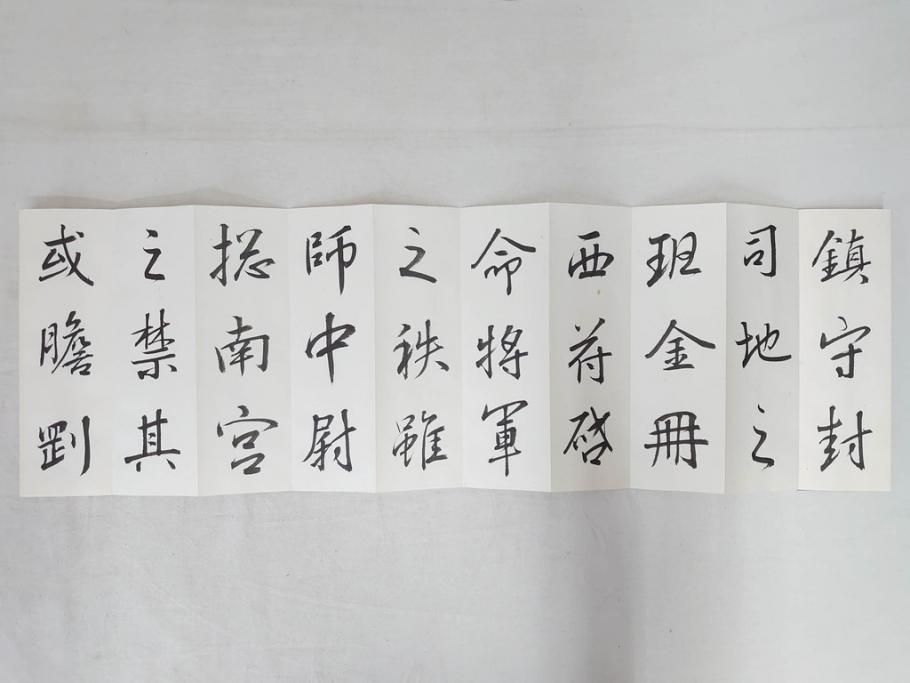 鎮守封
司地之
珇金冊
西苻啓
命將軍
之秩雖
師中尉
揔南宮
之禁其
或膽剛